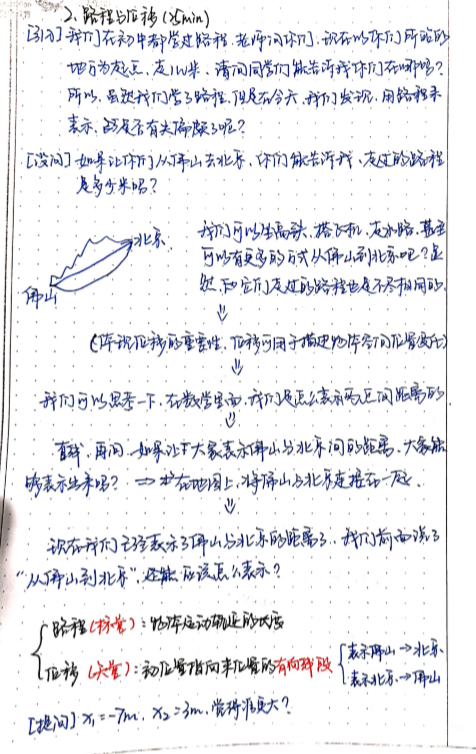 2、路程与位移(25min)
[引入]我们在初中都学过路程,老师问你们,现在以你们所站的
地方为起点,走100米,请问同学们能告诉我你们在哪吗?
所以,虽然我们学了路程,但是在今天,我们发现,用路程来
表示,是否有失偏颇了呢?
[设问]如果让你们从佛山去北京,你们能告诉我,走过的路程
是多少米吗?
北京
佛山
我们可以坐高铁、搭飞机、走水路,甚至
可以有更多的方式从佛山到北京吧?显
然,和它们走过的路程也是不尽相同的.
(体现位移的重要性,位移可用于描述物体空间位置变化)
我们可以思考一下,在数学里面,我们是怎么表示两点间距离的
直线,再问,如果让大家表示佛山与北京间的距离,大家能
够表示出来吗?⇒在地图上,将佛山与北京连接在一起.
现在我们已经表示了佛山与北京的距离了,我们前面说了
“从佛山到北京”,应该怎么表示?
路程(标量):物体运动轨迹的长度
位移(矢量):初位置指向末位置的有向线段
表示佛山→北京
表示北京→佛山
[提问] x₁=-7m, x₂=3m,觉得谁更大?